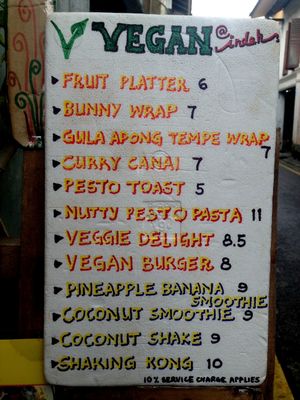 V VEGAN @indah
FRUIT PLATTER 6
BUNNY WRAP 7
GULA APONG TEMPE WRAP 7
CURRY CANAI 7
PESTO TOAST 5
NUTTY PESTO PASTA 11
VEGGIE DELIGHT 8.5
VEGAN BURGER 8
PINEAPPLE BANANA 9
SMOOTHIE
COCONUT SMOOTHIE 9
COCONUT SHAKE 9
SHAKING KONG 10
10% SERVICE CHARGE APPLIES